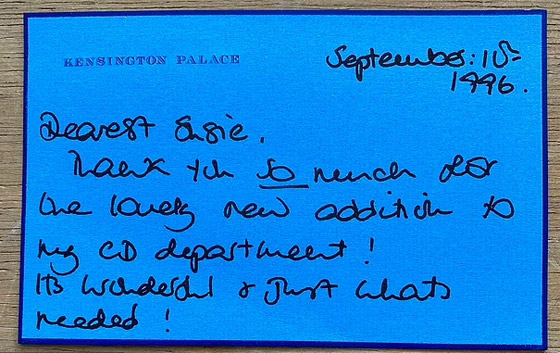 KENSINGTON PALACE
September: 10th
1996.
Dearest Susie,
Thank you so much for
the lovely new addition to
my CD department!
Its wonderful & just whats
needed!